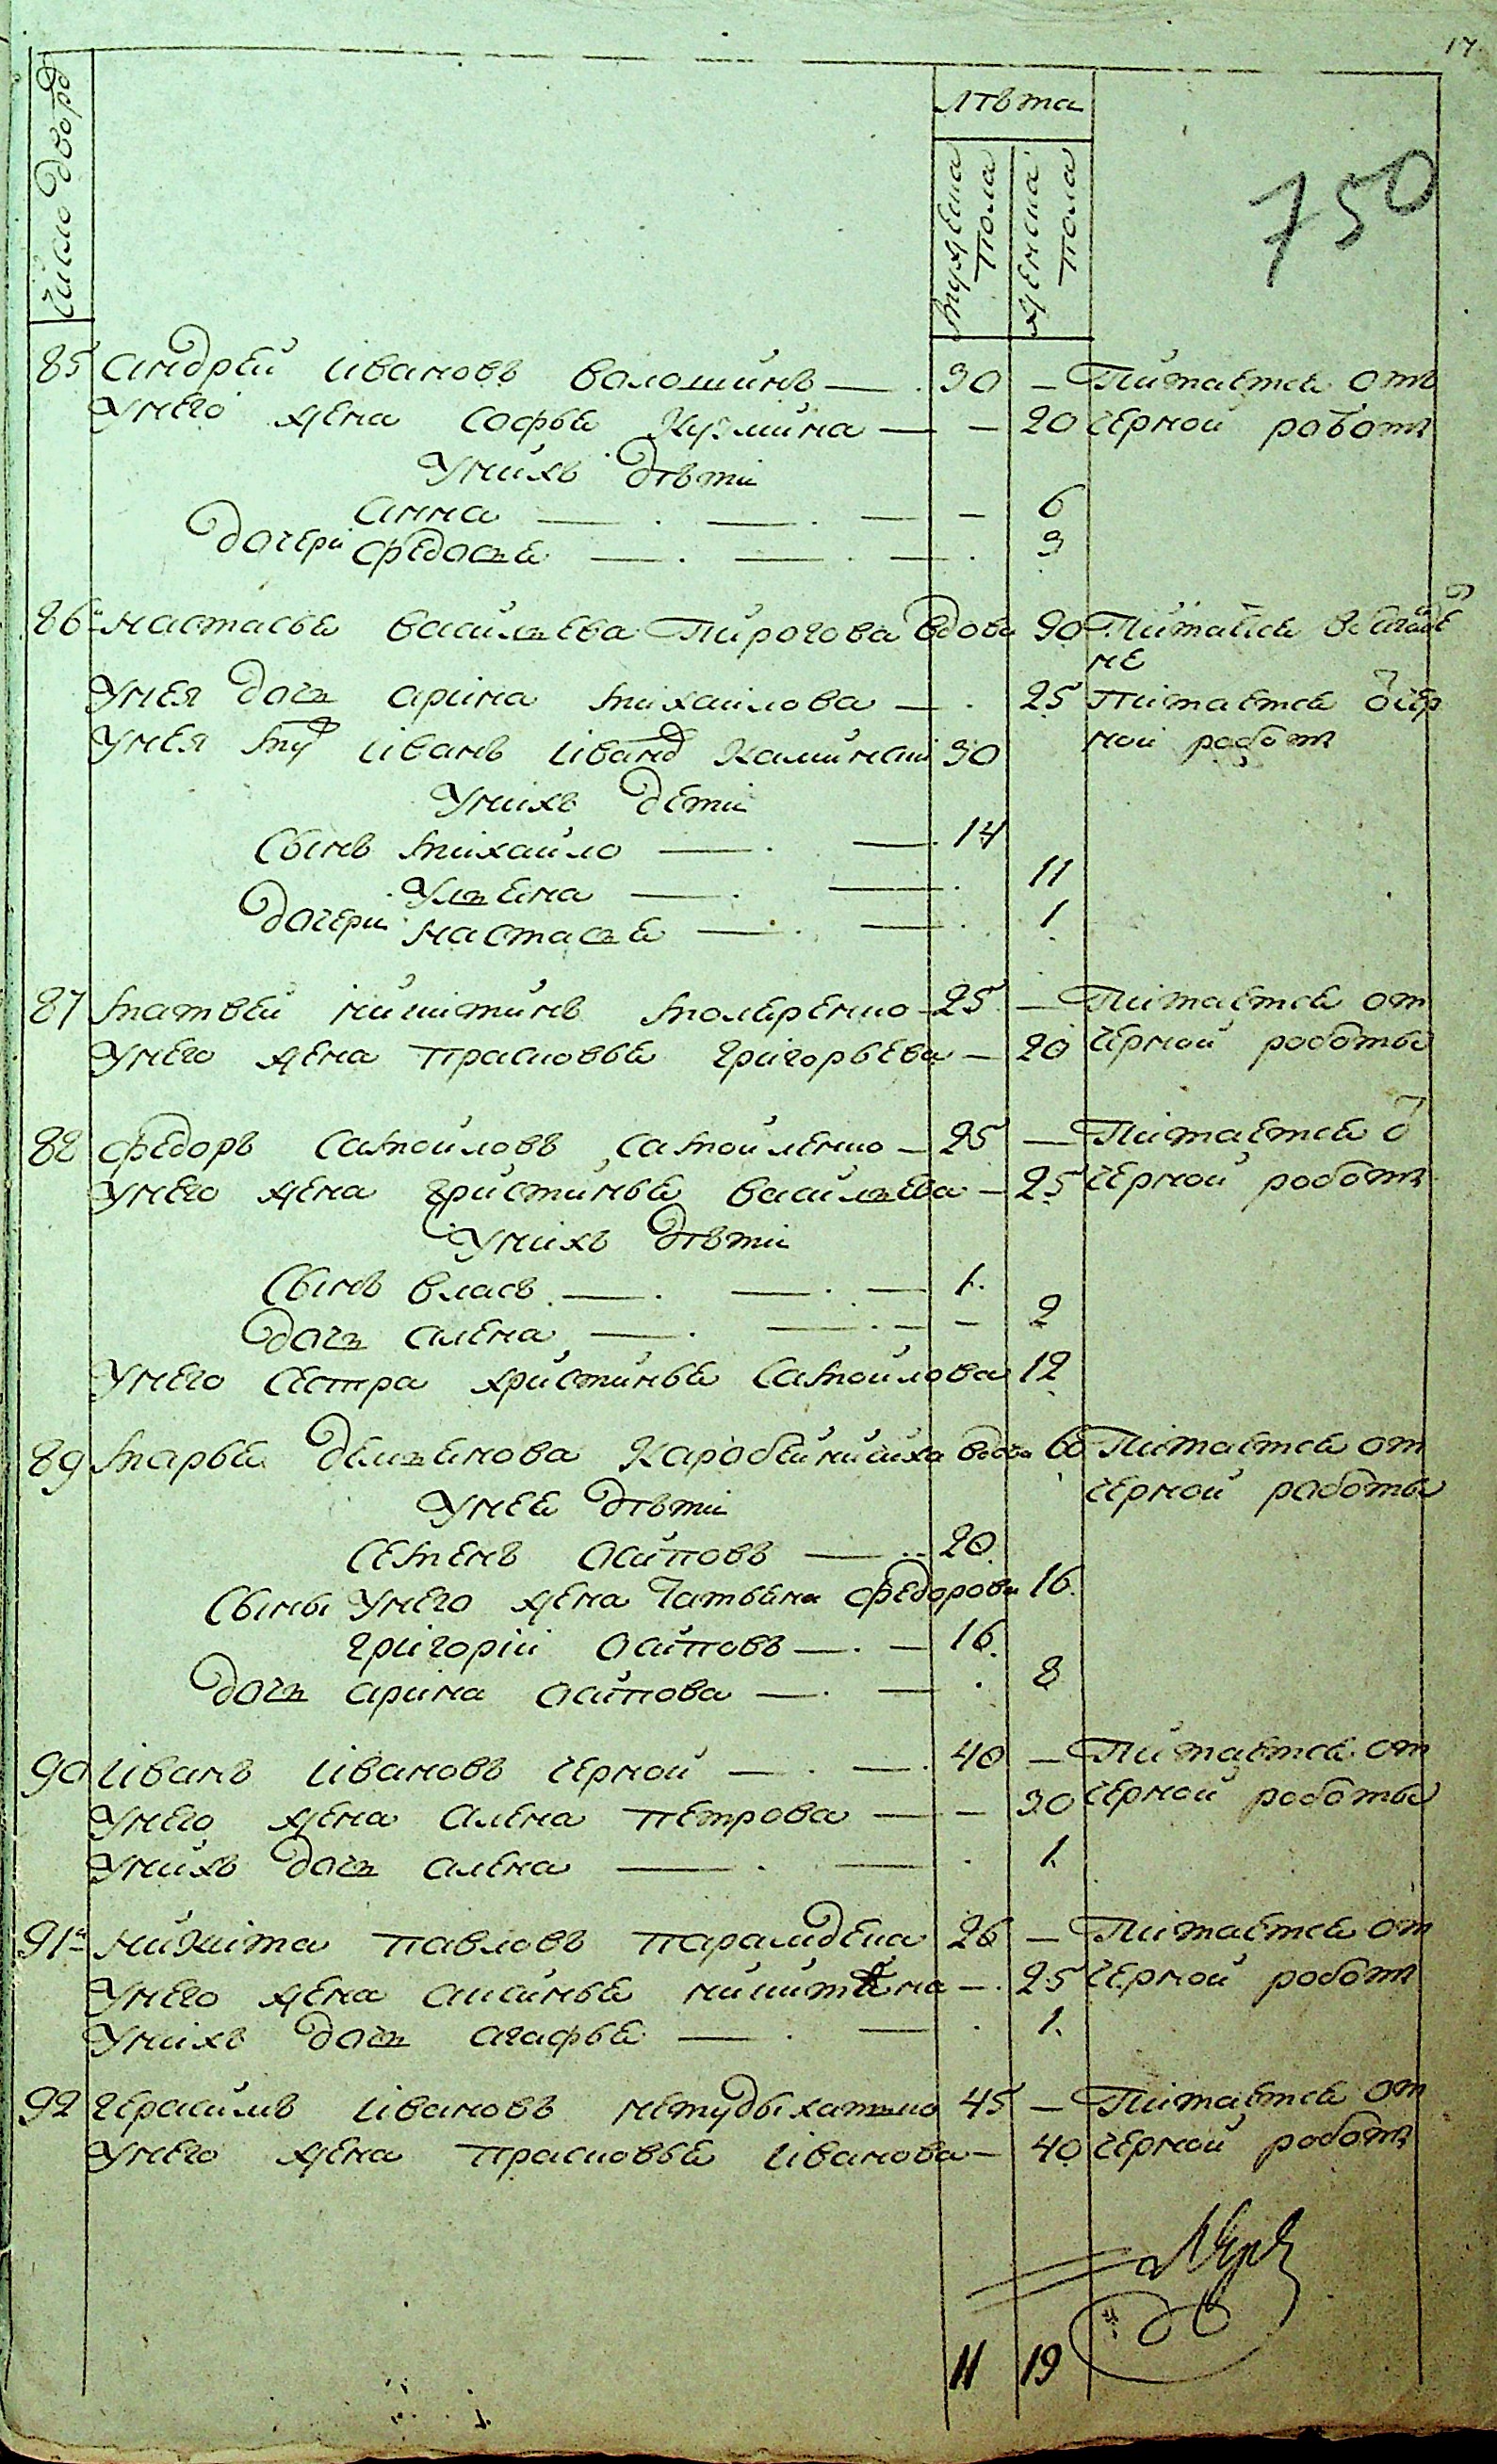 17
Число дворо
Лѣта
мужеска пола
женска пола
750
85 Андрей Ивановъ Волошинъ — 30 — Питается отъ
У него жена Софья Кузмина — — 20 черной работы
У нихъ дѣти
Анна — — — — 6
дочери Федосья — — — 3
86 Настасья Васильева Пирогова вдова 90 Питается
не
У нея дочь Арина Михайлова — 25 Питается о чер
У нея му Иванъ Иванов Калинский 30 ной работы
У нихъ дети
Сынъ Михайло — — 14
Ульяна — — 11
дочери Настасья — — 1
87 Матвей Никитинъ Моляренко 25 — Питается от
У него жена Прасковья Григорьева — 20 черной работы
88 Федоръ Самойловъ Самойленко — 25 — Питается о
У него жена Христинья Васильева — 25 черной работы
У нихъ дѣти
Сынъ Власъ — — — 1
дочь Алена — — — — 2
У него сестра Христинья Самойлова 12
89 Марья Демьянова Каробейничиха вдова 60 Питается от
У нея дѣти черной работы
Семенъ Осиповъ — 20
Сыны У него жена Татьяна Федорова 16
Григорий Осиповъ — — 16
дочь Арина Осипова — — 8
90 Иванъ Ивановъ Черной — — 40 — Питается от
У него жена Алена Петрова — — 30 черной работы
У нихъ дочь Алена — — 1
91 Никита Павловъ 26 — Питается от
У него жена Аксинья Никитина — 25 черной работы
У нихъ дочь Агафья — — 1
92 Герасимъ Ивановъ Нетудыхатько 45 — Питается от
У него жена Прасковья Иванова — 40 черной работы
11 19